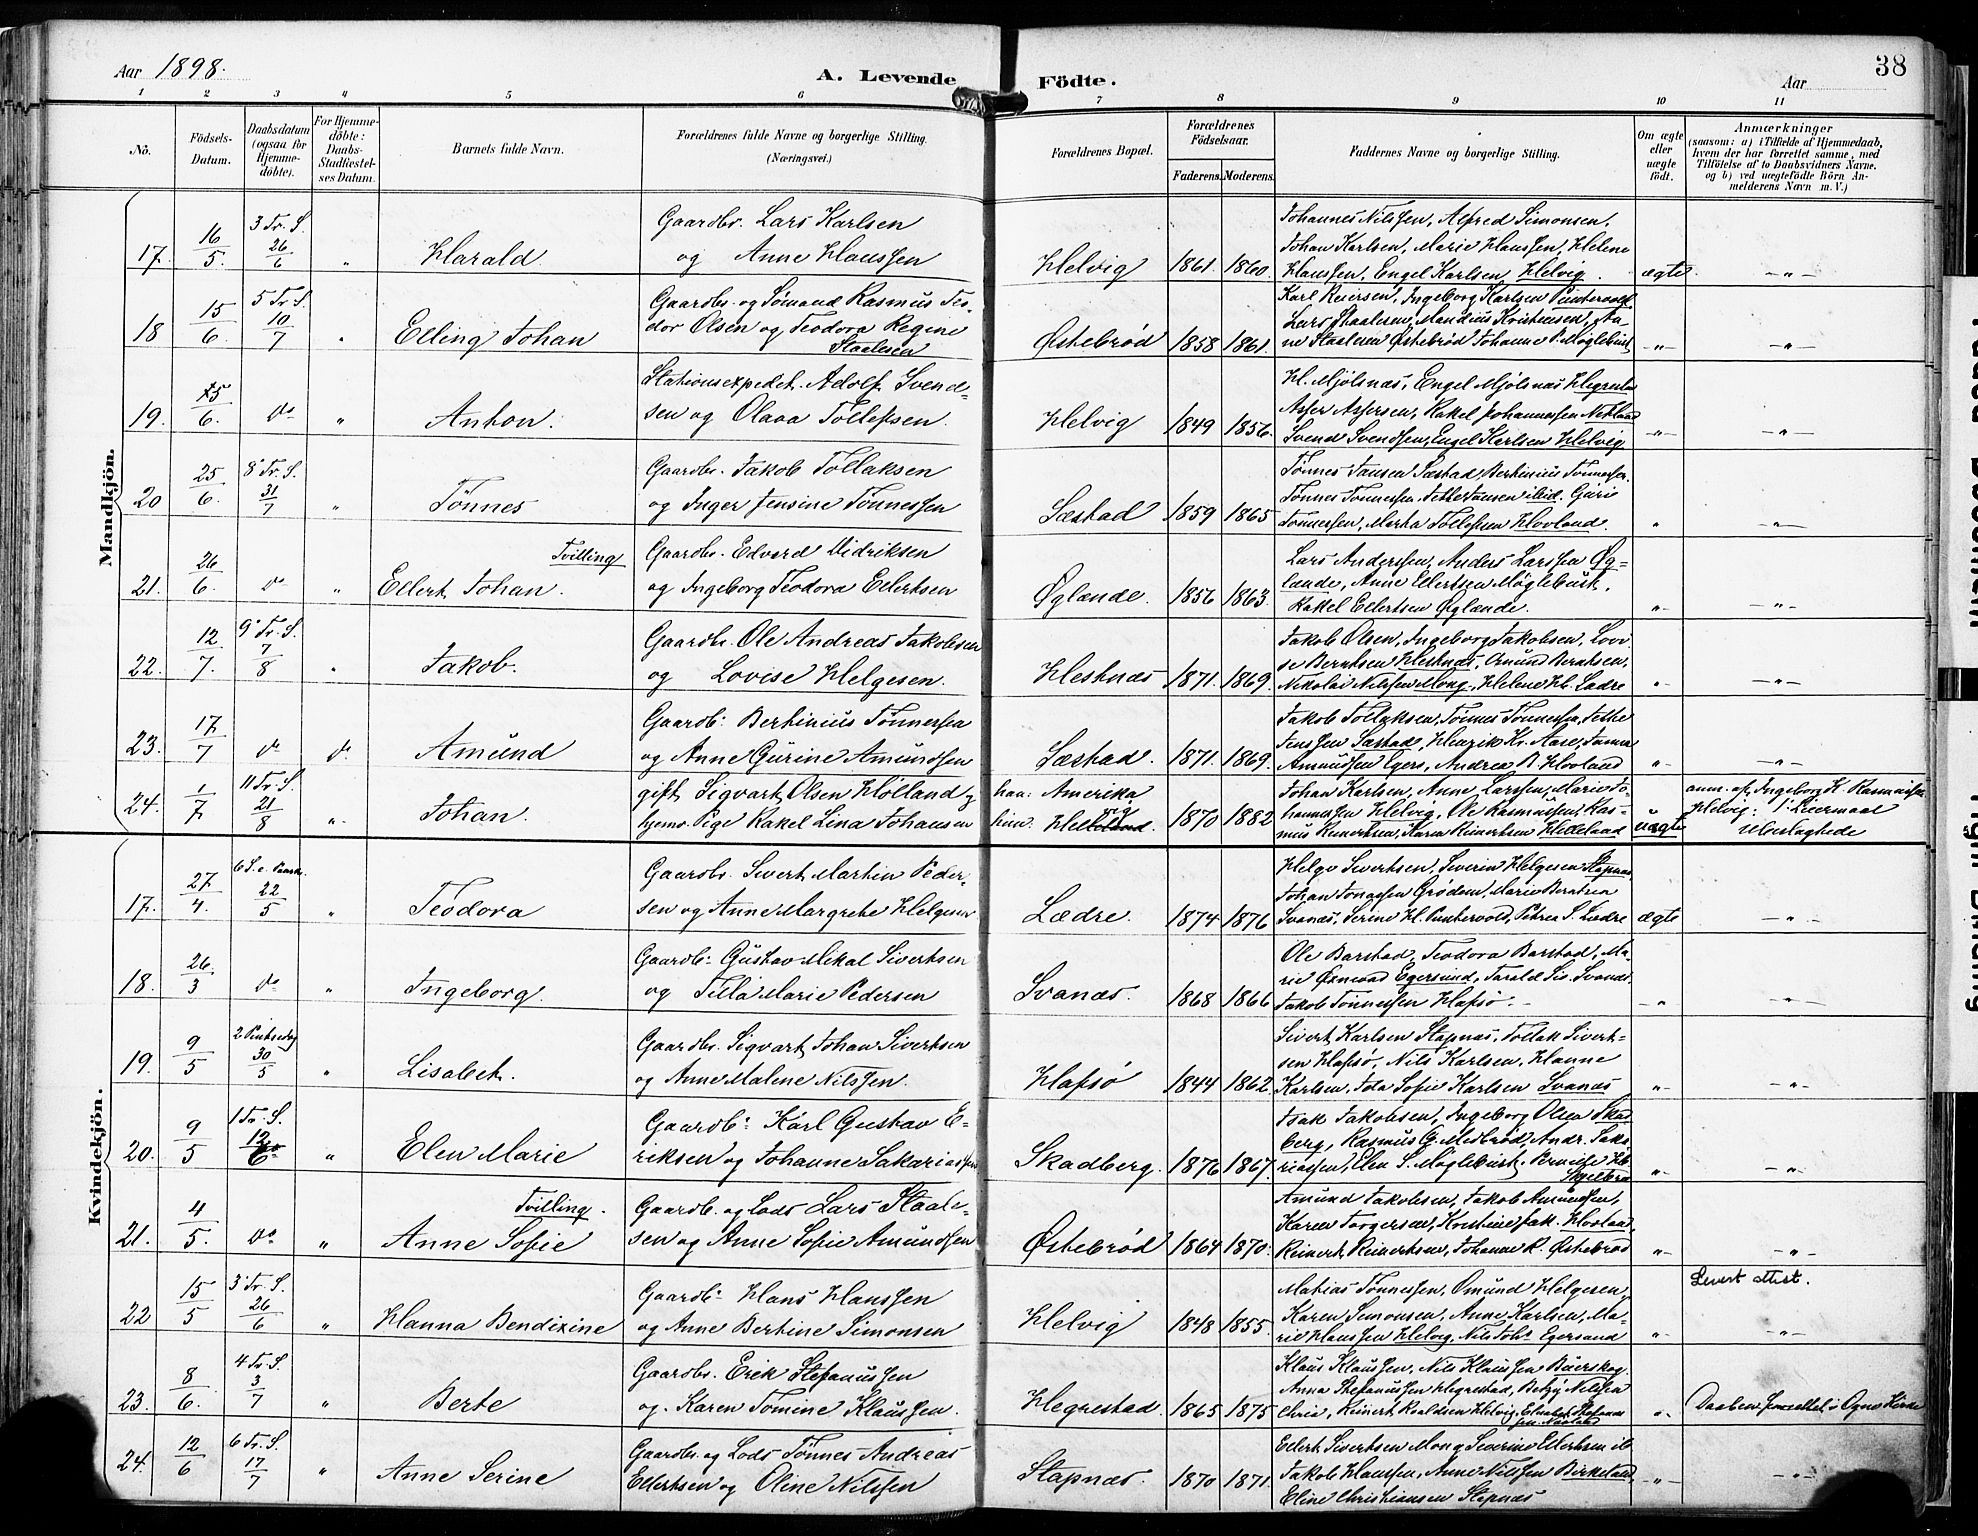 Aar 1898.
A. Levende Födte.
Aar
38
1 2 3 4 5 6 7 8 9 10 11
No.
Födsels-Datum.
Daabsdatum (ogsaa för Hjemmedöbte).
For Hjemmedöbte: Daabs-Stadfæstelses Datum.
Barnets fulde Navn.
Forældrenes fulde Navne og borgerlige Stilling. (Næringsvei.)
Forældrenes Bopæl.
Forældrenes Födselsaar.
Faderens. Moderens.
Faddernes Navne og borgerlige Stilling.
Om ægte eller uægte födt.
Anmærkninger
(saasom: a) i Tilfælde af Hjemmedaab, hvem der har forrettet samme, med Tilföielse af to Daabsvidners Navne. og b) ved uægtefödte Börn Anmelderens Navn m. V.)
Mandkjön.
17. 16/5. 3 Tr. S. 26/6 " Harald. Gaardbr. Lars Karlsen
og Anne Hanssen Helvig 1861. 1860.
Johannes Nilssen, Alfred Simonsen,
Johan Karlsen, Marie Hanssen, Helene
Hanssen, Engel Karlsen Helvig. ægte —"—
18 15/6. 5 Tr. S. 10/7 " Elling Johan Gaardbr. og Sømand Rasmus Teo-
dor Olsen og Teodora Regine
Staalesen Østebrød 1858 1861.
Karl Reiersen, Ingeborg Karlsen Puntervold
Lars Staalesen, Mandius Kristensen, An-
ne Staalesen Østebrød Johanne P. Møglebust —"— —"—
19. 15/6. do " Anton. Stationsexpedit. Adolf Svend-
sen og Olava Tollefsen. Helvig 1849 1856.
Hl. Mjølsnæs, Engel Mjølsnæs Hegrestad
Asser Assersen, Rakel Johannessen Netland
Svend Svendsen, Engel Karlsen Helvig —"— —"—
20 25/6. 8 Tr. S. 31/7 " Tønnes Gaardbr. Jakob Tollaksen
og Inger Jensine Tønnessen Sæstad 1859 1865
Tønnes Jansen Sæstad, Bertinius Tønnessen
Tønnes Tønnessen, Jethe Jansen ibid. Guri
Tønnessen, Marta Tollefsen Hovland. " —"—
21. 26/6. do " Tvilling
Ellert Johan. Gaardbr. Edvard Didriksen
og Ingeborg Teodora Ellertsen Øglænde. 1856 1863.
Lars Anderssen, Anders Larssen Øg-
lænde, Anne Ellertsen Møglebust,
Rakel Ellertsen Øglænde. " —"—
22. 12/7. 9 Tr. S. 7/8 " Jakob. Gaardbr. Ole Andreas Jakobsen
og Lovise Helgesen. Hestnæs 1871. 1869.
Jakob Olsen, Ingeborg Jakobsen, Lovi-
se Berntsen Hestnæs, Omund Berntsen,
Nikolai Nilssen Mong, Helene Hl. Lædre " —"—
23. 17/7 do do. Amund Gaardb: Bertinius Tønnessen
og Anne Gurine Amundsen Sæstad. 1871. 1869.
Jakob Tollaksen, Tønnes Tønnessen, Jethe
Jenssen Sæstad, Henrik Kr. Aase,
Amundsen Egers, Andrea B. Hovland " —"—
24. 1/7 11 Tr. S. 21/8 " Johan. gift Sigvart Olsen Hølland og
hjemv. Pige Rakel Lina Johansen
han: Amerika
hun: Helvig. 1870 1882
Johan Karlsen, Anne Larssen, Marie Jo-
hannessen Helvig, Ole Rasmussen, Ras-
mus Reinertsen, Karen Reinertsen Hedeland
uægte
anm. af: Ingeborg K. Rasmussen
Helvig: 1. Leiermaal
Kvindekjön.
17. 27/4. 6 S. e. Paaske. 22/5 " Teodora Gaardbr. Sivert Martin Peder-
sen og Anne Margrete Helgesen Lædre. 1874 1876
Helge Sivertsen, Severin Helgesen Stapnæs
Johan Jonassen Grødem, Marie Berntsen
Svanæs, Serine Hl. Puntervold, Petrea S. Lædre ægte —"—
18. 26/3 do " Ingeborg. Gaardb: Gustav Mikal Sivertsen
og Tilla Marie Pedersen Svanæs. 1868 1866
Ole Barstad, Teodora Barstad, Ma-
rie Egersund, Tarald Siv. Svanæs.
Jakob Tønnessen Hafsø. —"— —"—
19. 9/5 2 Pintsedag 30/5 " Lisabet. Gaardbr. Sigvart Johan Sivertsen
og Anne Malene Nilssen. Hafsø 1844 1862
Sivert Karlsen Stapnæs, Tollak Sivert-
sen Hafsø, Nils Karlsen, Hanne
Karlsen, Sofie Karlsen Svanæs —"— —"—
20. 9/5 1 Tr. S. 12/6 " Elen Marie Gaardb: Karl Gustav E-
riksen og Johanne Sakariassen Skadberg. 1876 1867.
Isak Jakobsen, Ingeborg Olsen Skad-
berg, Rasmus G. Midbrød, Andr. Saka-
riassen, Elen S. Møglebust, " —"—
21. 4/5. do " Tvilling.
Anne Sofie Gaardb. og Lods Lars Staale-
sen og Anne Sofie Amundsen Østebrød 1864 1870.
Amund Jakobsen, Jakob Amundsen,
Karen Torgersen, Kristine Jak. Hovland,
Reinert Reinertsen, Johanne R. Østebrød —"— —"—
22 15/5 3 Tr. S. 26/6 " Hanna Bendixine Gaardb: Hans Hanssen
og Anne Bertine Simonsen Helvig 1848 1855.
Matias Tønnessen, Omund Helgesen,
Karen Simonsen, Anne Karlsen, Ma-
rie Hanssen Helvig, Nils Joh. Egersund —"—
Levert attest.
—"—
23. 8/6. 4 Tr. S. 3/7 " Berte Gaardbr. Erik Stefanussen
og Karen Tomine Klaussen. Hegrestad. 1865 1875
Klaus Klaussen, Nils Klaussen Buerskog
Anna Stefanussen Hegrestad, Betzy Nilssen
Reinert Roaldsen Helvig, Elisabet " Daaben forrettet i Ogne Kirke
24. 12/6 6 Tr. S. 17/7 " Anne Serine Gaardbr. og Lods Tønnes Andreas
Ellertsen og Oline Nilssen Stapnæs. 1870 1871.
Ellert Sivertsen Mong, Severine Ellertsen ib
Jakob Hanssen, Anne Nilssen Birkeland,
Eline Christiansen Stapnæs —"— —"—